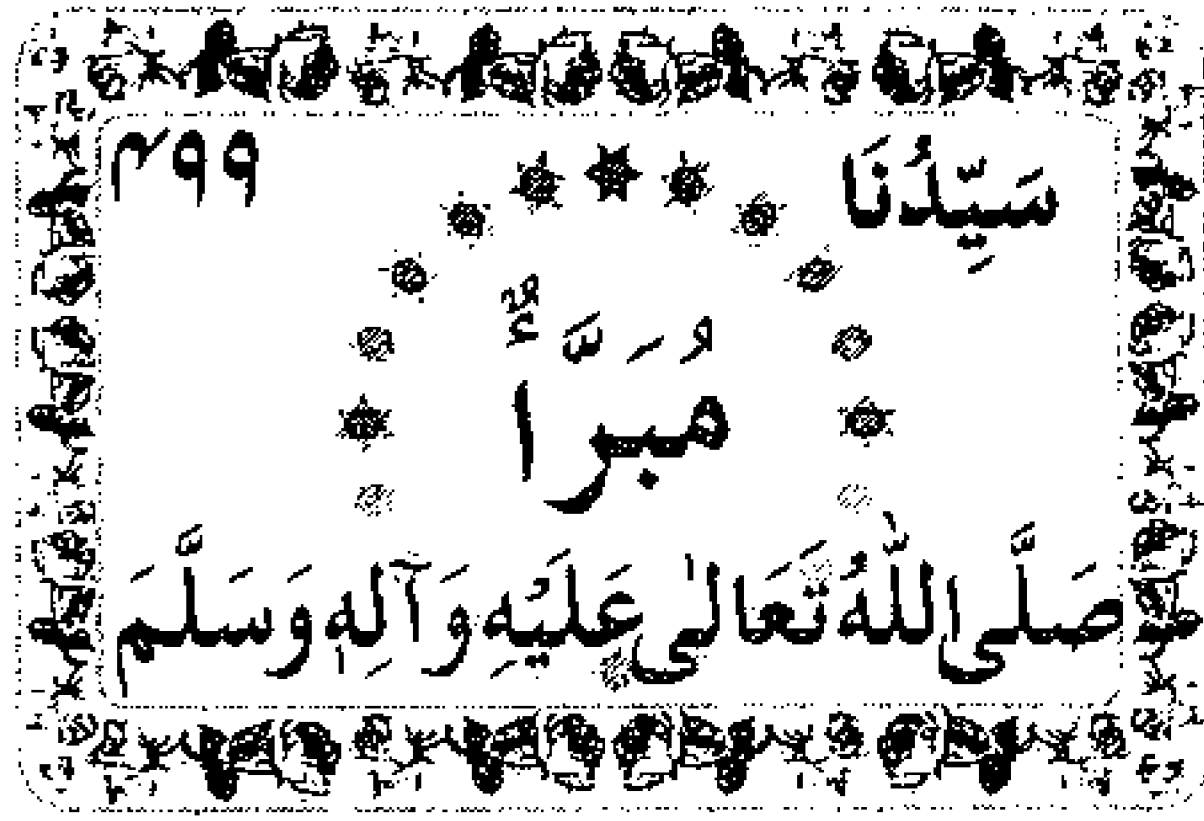 سَيِّدُنَا ۴۹۹
مُبَرَّأٌ
صَلَّى اللّٰهُ تَعَالىٰ عَلَيْهِ وَآلِهٖ وَسَلَّمَ